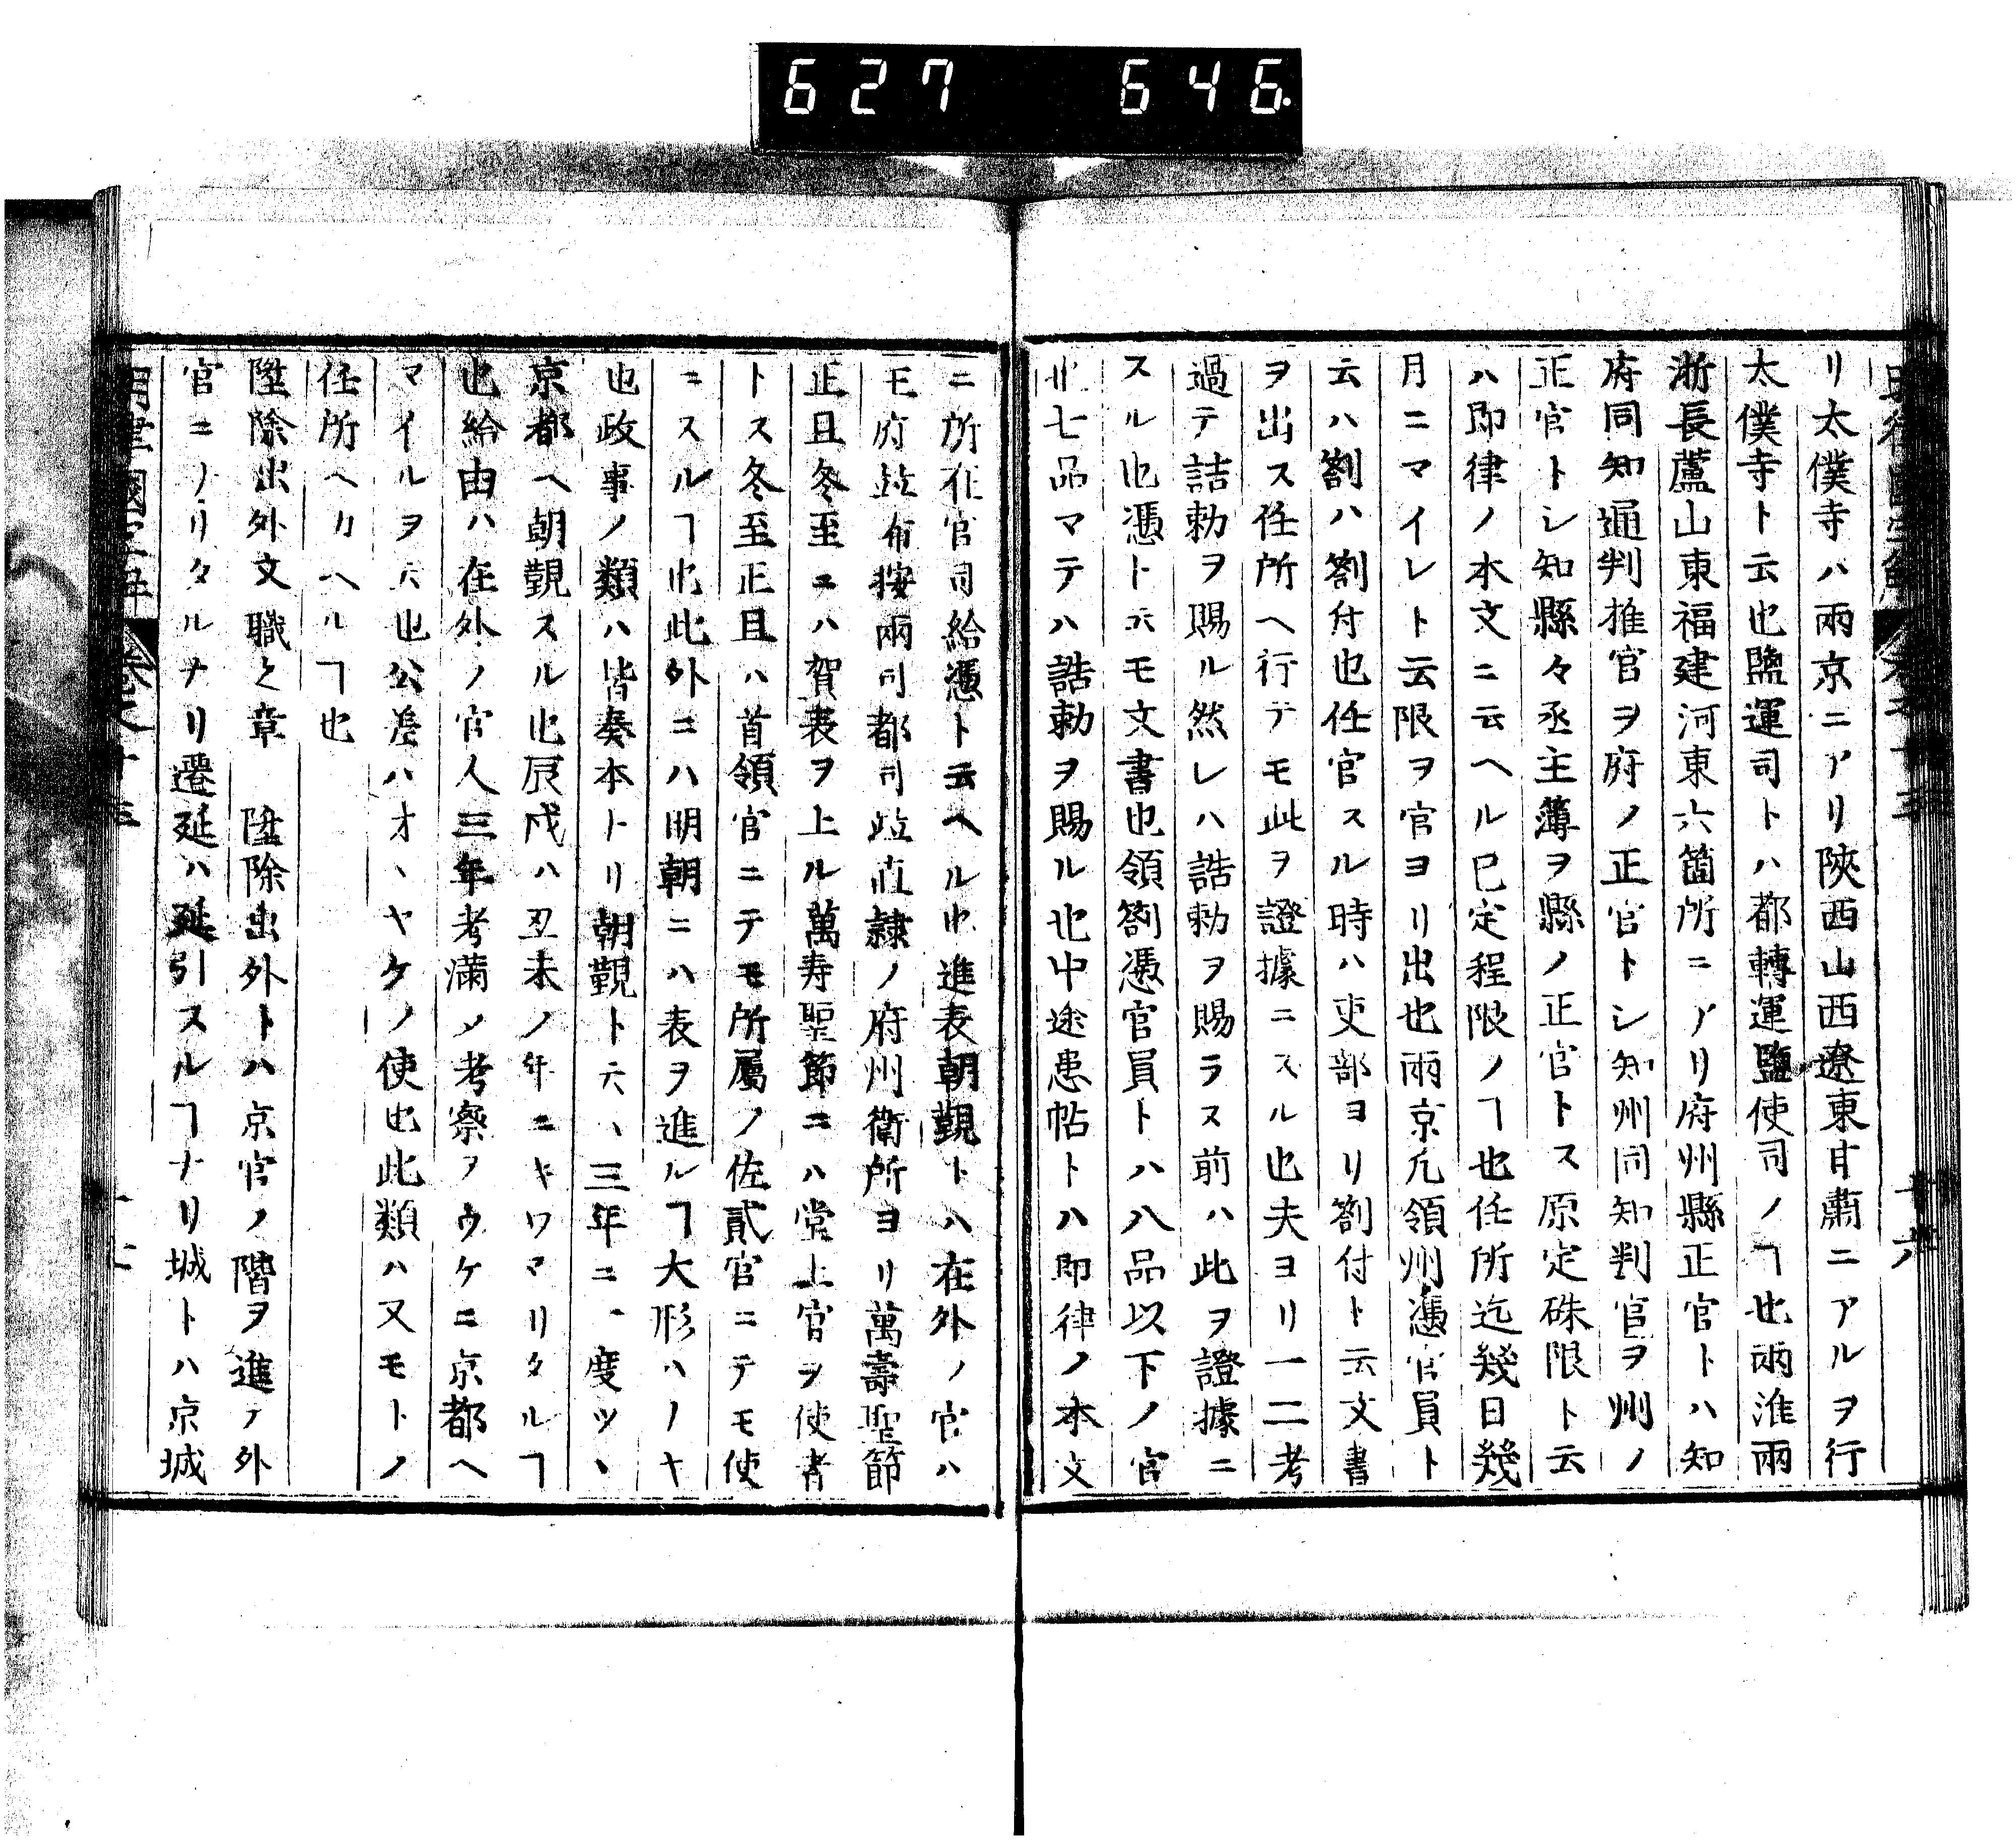 627 646.
リ太僕寺ハ兩京ニアリ陝西山西遼東甘肅ニアルヲ行
太僕寺ト云也鹽運司トハ都轉運鹽使司ノヿ也兩淮兩
浙長蘆山東福建河東六箇所ニアリ府州縣正官トハ知
府同知通判推官ヲ府ノ正官トシ知州同知判官ヲ州ノ
正官トシ知縣々丞主薄ヲ縣ノ正官トス原定硃限ト云
ハ即律ノ本文ニ云ヘル已定程限ノヿ也任所迄幾日幾
月ニマイレト云限ヲ官ヨリ出也兩京凢領州憑官員ト
云ハ劄ハ劄付也任官スル時ハ吏部ヨリ劄付ト云文書
ヲ出ス任所ヘ行テモ此ヲ證據ニスル也夫ヨリ一二考
過テ誥勅ヲ賜ル然レハ誥勅ヲ賜ラヌ前ハ此ヲ證據ニ
スル也憑ト云モ文書也領劄憑官員トハ八品以下ノ官
也七品マテハ誥勅ヲ賜ル也中途患帖トハ即律ノ本文
ニ所在官司給憑ト云ヘル也進表朝覲トハ在外ノ官ハ
王府並布按兩司都司並直隷ノ府州衛所ヨリ萬壽聖節
正旦冬至ニハ賀表ヲ上ル萬寿聖節ニハ堂上官ヲ使者
トス冬至正旦ハ首領官ニテモ所屬ノ佐貳官ニテモ使
ニスルヿ也此外ニハ明朝ニハ表ヲ進ルヿ大形ハノナ
也政事ノ類ハ皆奏本トリ朝覲ト云ハ三年ニ一度ツヽ
京都ヘ朝覲スル也辰戌ハ丑未ノ年ニキワマリタルヿ
也給由ハ在外ノ官人三年考滿メ考察ヲウケニ京都ヘ
マイルヲ云也公差ハオヽヤケノ使也此類ハ又モトノ
任所ヘカヘルヿ也
陞除出外文職之章　陞除出外トハ京官ノ階ヲ進テ外
官ニノリタルナリ遷延ハ延引スルヿナリ城トハ京城